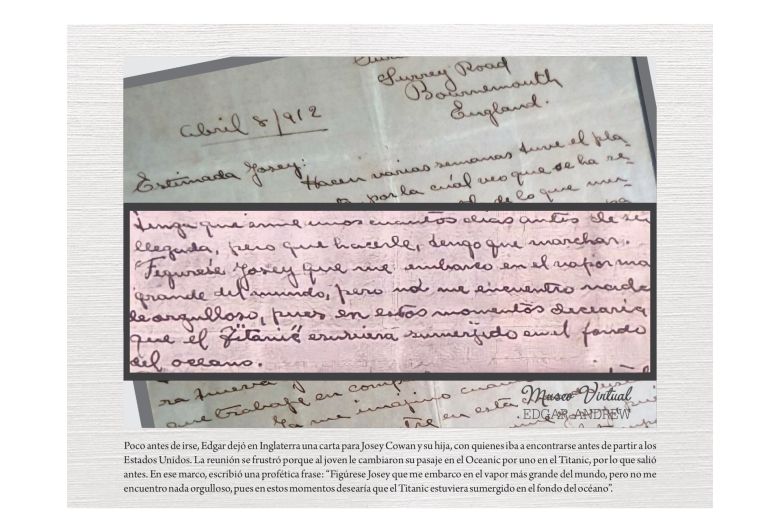 Surrey Road
Bournemouth
England.
Abril 8/912
Estimada Josey:
Hacen varias semanas tuve el pla-
por la cuál veo que se ha re-
de lo que me-
tenga que irme unos cuantos dias antes de su
llegada, pero que hacerle, tengo que marchar.
Figurese Josey que me embarco en el vapor mas
grande del mundo, pero no me encuentro nada
de orgulloso, pues en estos momentos desearia
que el "Titanic" estuviera sumerjido en el fondo
del oceano.
ra nueva
que trabaje en comp
Ya me imajino cuan
en esta
Museo Virtual
EDGAR ANDREW
Poco antes de irse, Edgar dejó en Inglaterra una carta para Josey Cowan y su hija, con quienes iba a encontrarse antes de partir a los
Estados Unidos. La reunión se frustró porque al joven le cambiaron su pasaje en el Oceanic por uno en el Titanic, por lo que salió
antes. En ese marco, escribió una profética frase: “Figúrese Josey que me embarco en el vapor más grande del mundo, pero no me
encuentro nada orgulloso, pues en estos momentos desearía que el Titanic estuviera sumergido en el fondo del océano”.